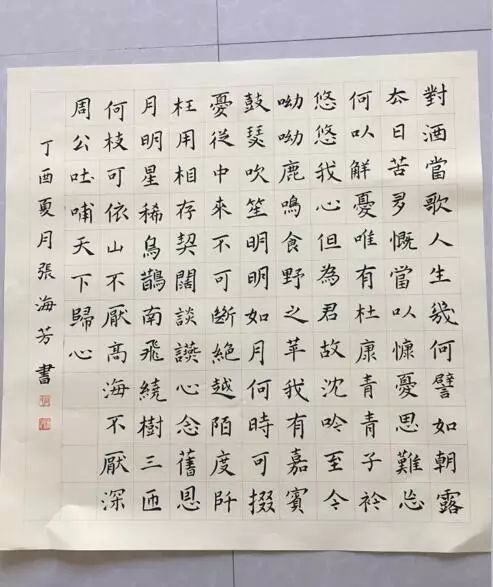 對酒當歌人生幾何譬如朝露
厺日苦多慨當以慷憂思難忘
何以解憂唯有杜康青青子衿
悠悠我心但為君故沈吟至今
呦呦鹿鳴食野之苹我有嘉賓
鼓瑟吹笙明明如月何時可掇
憂從中來不可斷絕越陌度阡
枉用相存契闊談讌心念舊恩
月明星稀烏鵲南飛繞樹三匝
何枝可依山不厭高海不厭深
周公吐哺天下歸心
丁酉夏月張海芳書